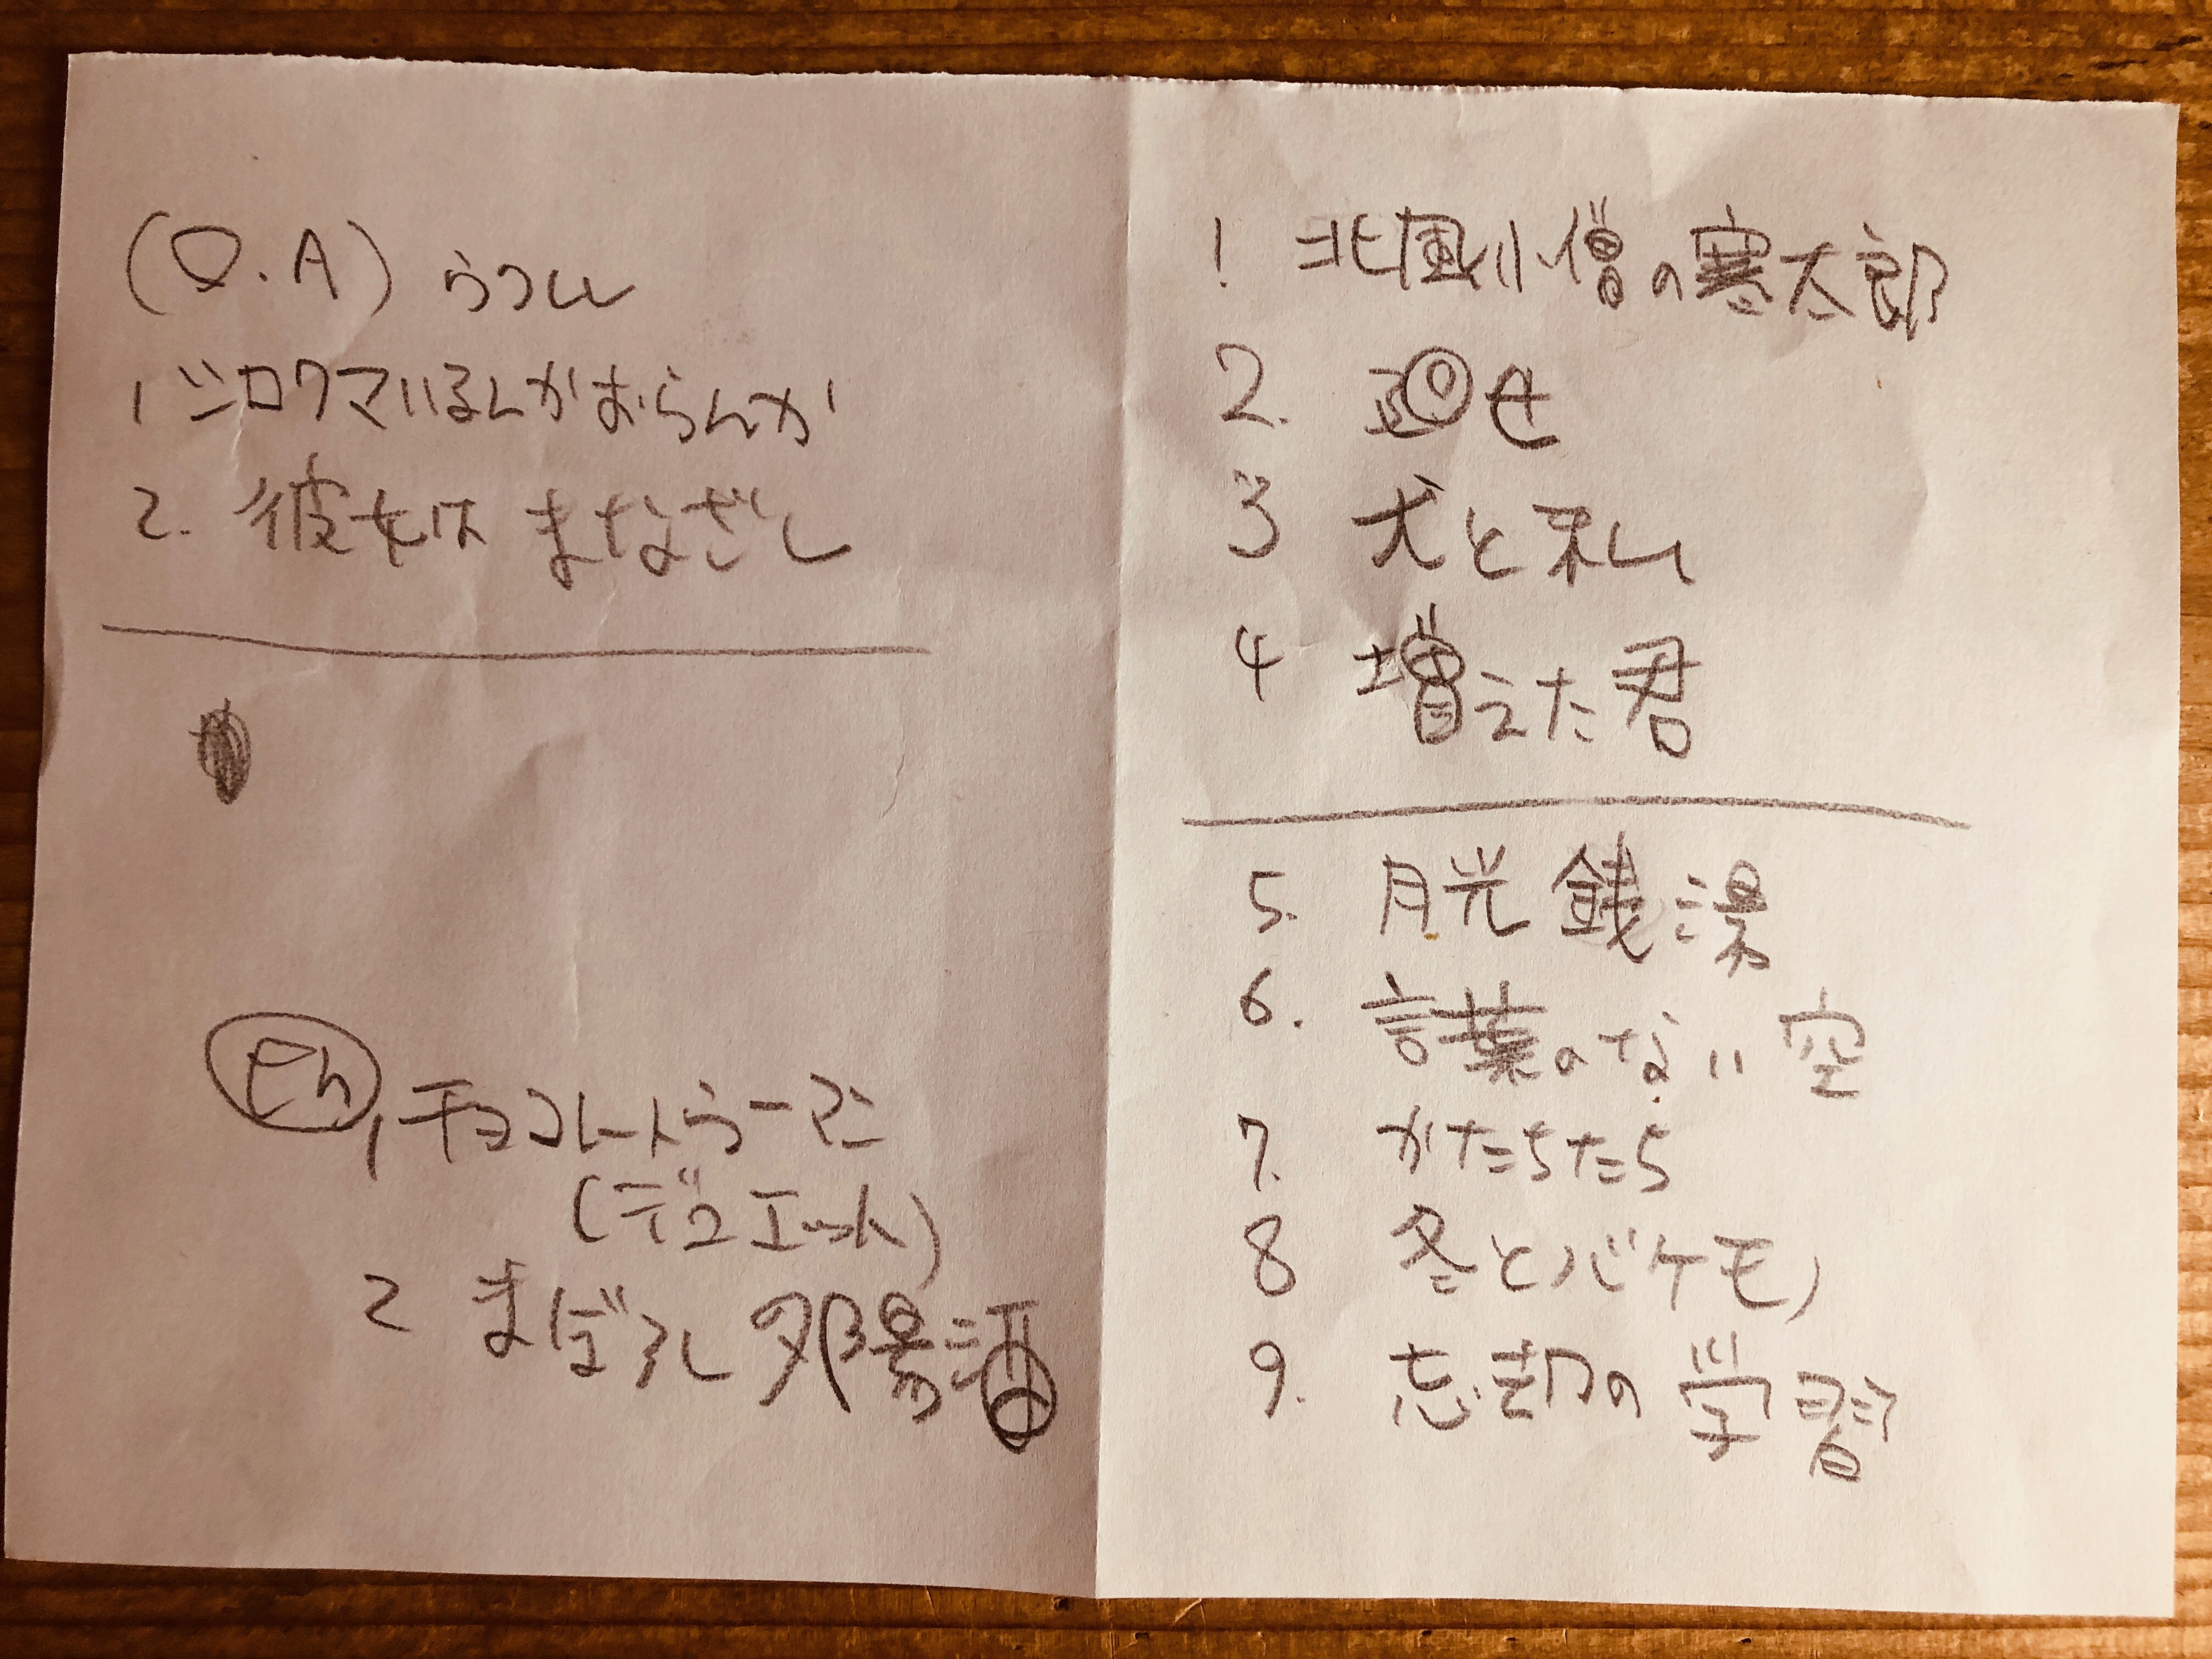 (O.A) らつん
1 シロクマいるんかおらんか
2. 彼女は まなざし
Eh
1, チョコレートラーマン
(デュエット)
2 まぼろし 邪湯酒
1 北風小僧の寒太郎
2. 廻せ
3 犬と私
4 増えた君
5. 月光 銭湯
6. 言葉のない 空
7. かたちたち
8 冬とバケモノ
9. 忘却の 学習